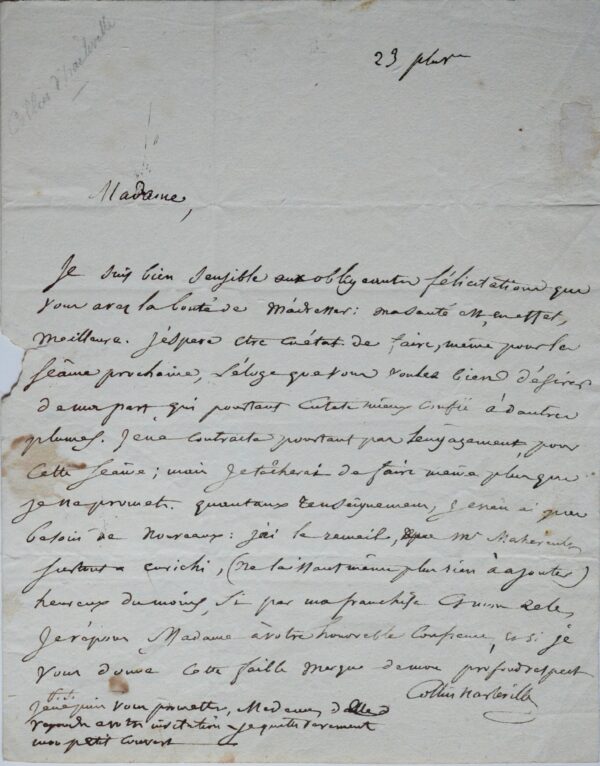 Collin d'harleville
23 pluv
Madame,
Je suis bien sensible aux obligeantes félicitations que
vous avez la bonté de m'adresser : ma santé est, en effet,
meilleure. J'espere être en état de faire, même pour la
séance prochaine, l'éloge que vous voulez bien désirer
de ma part, qui pourtant eut été mieux confié à d'autres
plumes. Je ne contracte pourtant pas l'engagement, pour
cette séance ; mais je tâcherai de faire même plus que
je ne promets. quant aux renseignemens, je n'en ai pas
besoin de nouveaux : j'ai le recueil, que Mr
surtout a enrichi, (ne laissant même plus rien à ajouter)
heureux du moins, si par ma franchise et mon zele,
Je répons, Madame à votre honorable confiance, et si je
vous donne cette faible marque de mon profond respect
Collin harleville
P.S. Je ne puis vous promettre, Madame, de
repondre à votre invitation je quitte rarement
mon petit couvert